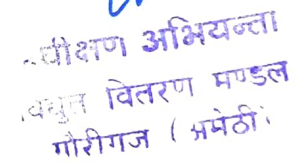 अधीक्षण अभियन्ता
विद्युत वितरण मण्डल
गौरीगंज (अमेठी)